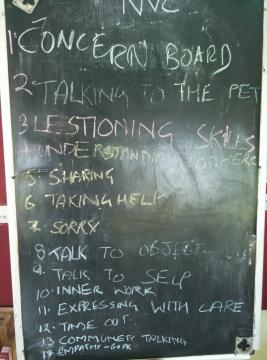 NVC
1. CONCERN BOARD
2. TALKING TO THE PET
3 LESTIONING SKILLS
4 UNDERSTANDING OTHERS
5 SHARING
6 TAKING HELP
7 SORRY
8 TALK TO OBJECT
9. TALK TO SELF
10. INNER WORK
11. EXPRESSING WITH CARE
12. TIME OUT
13 COMMUNITY TALKING
14 EMPATHY